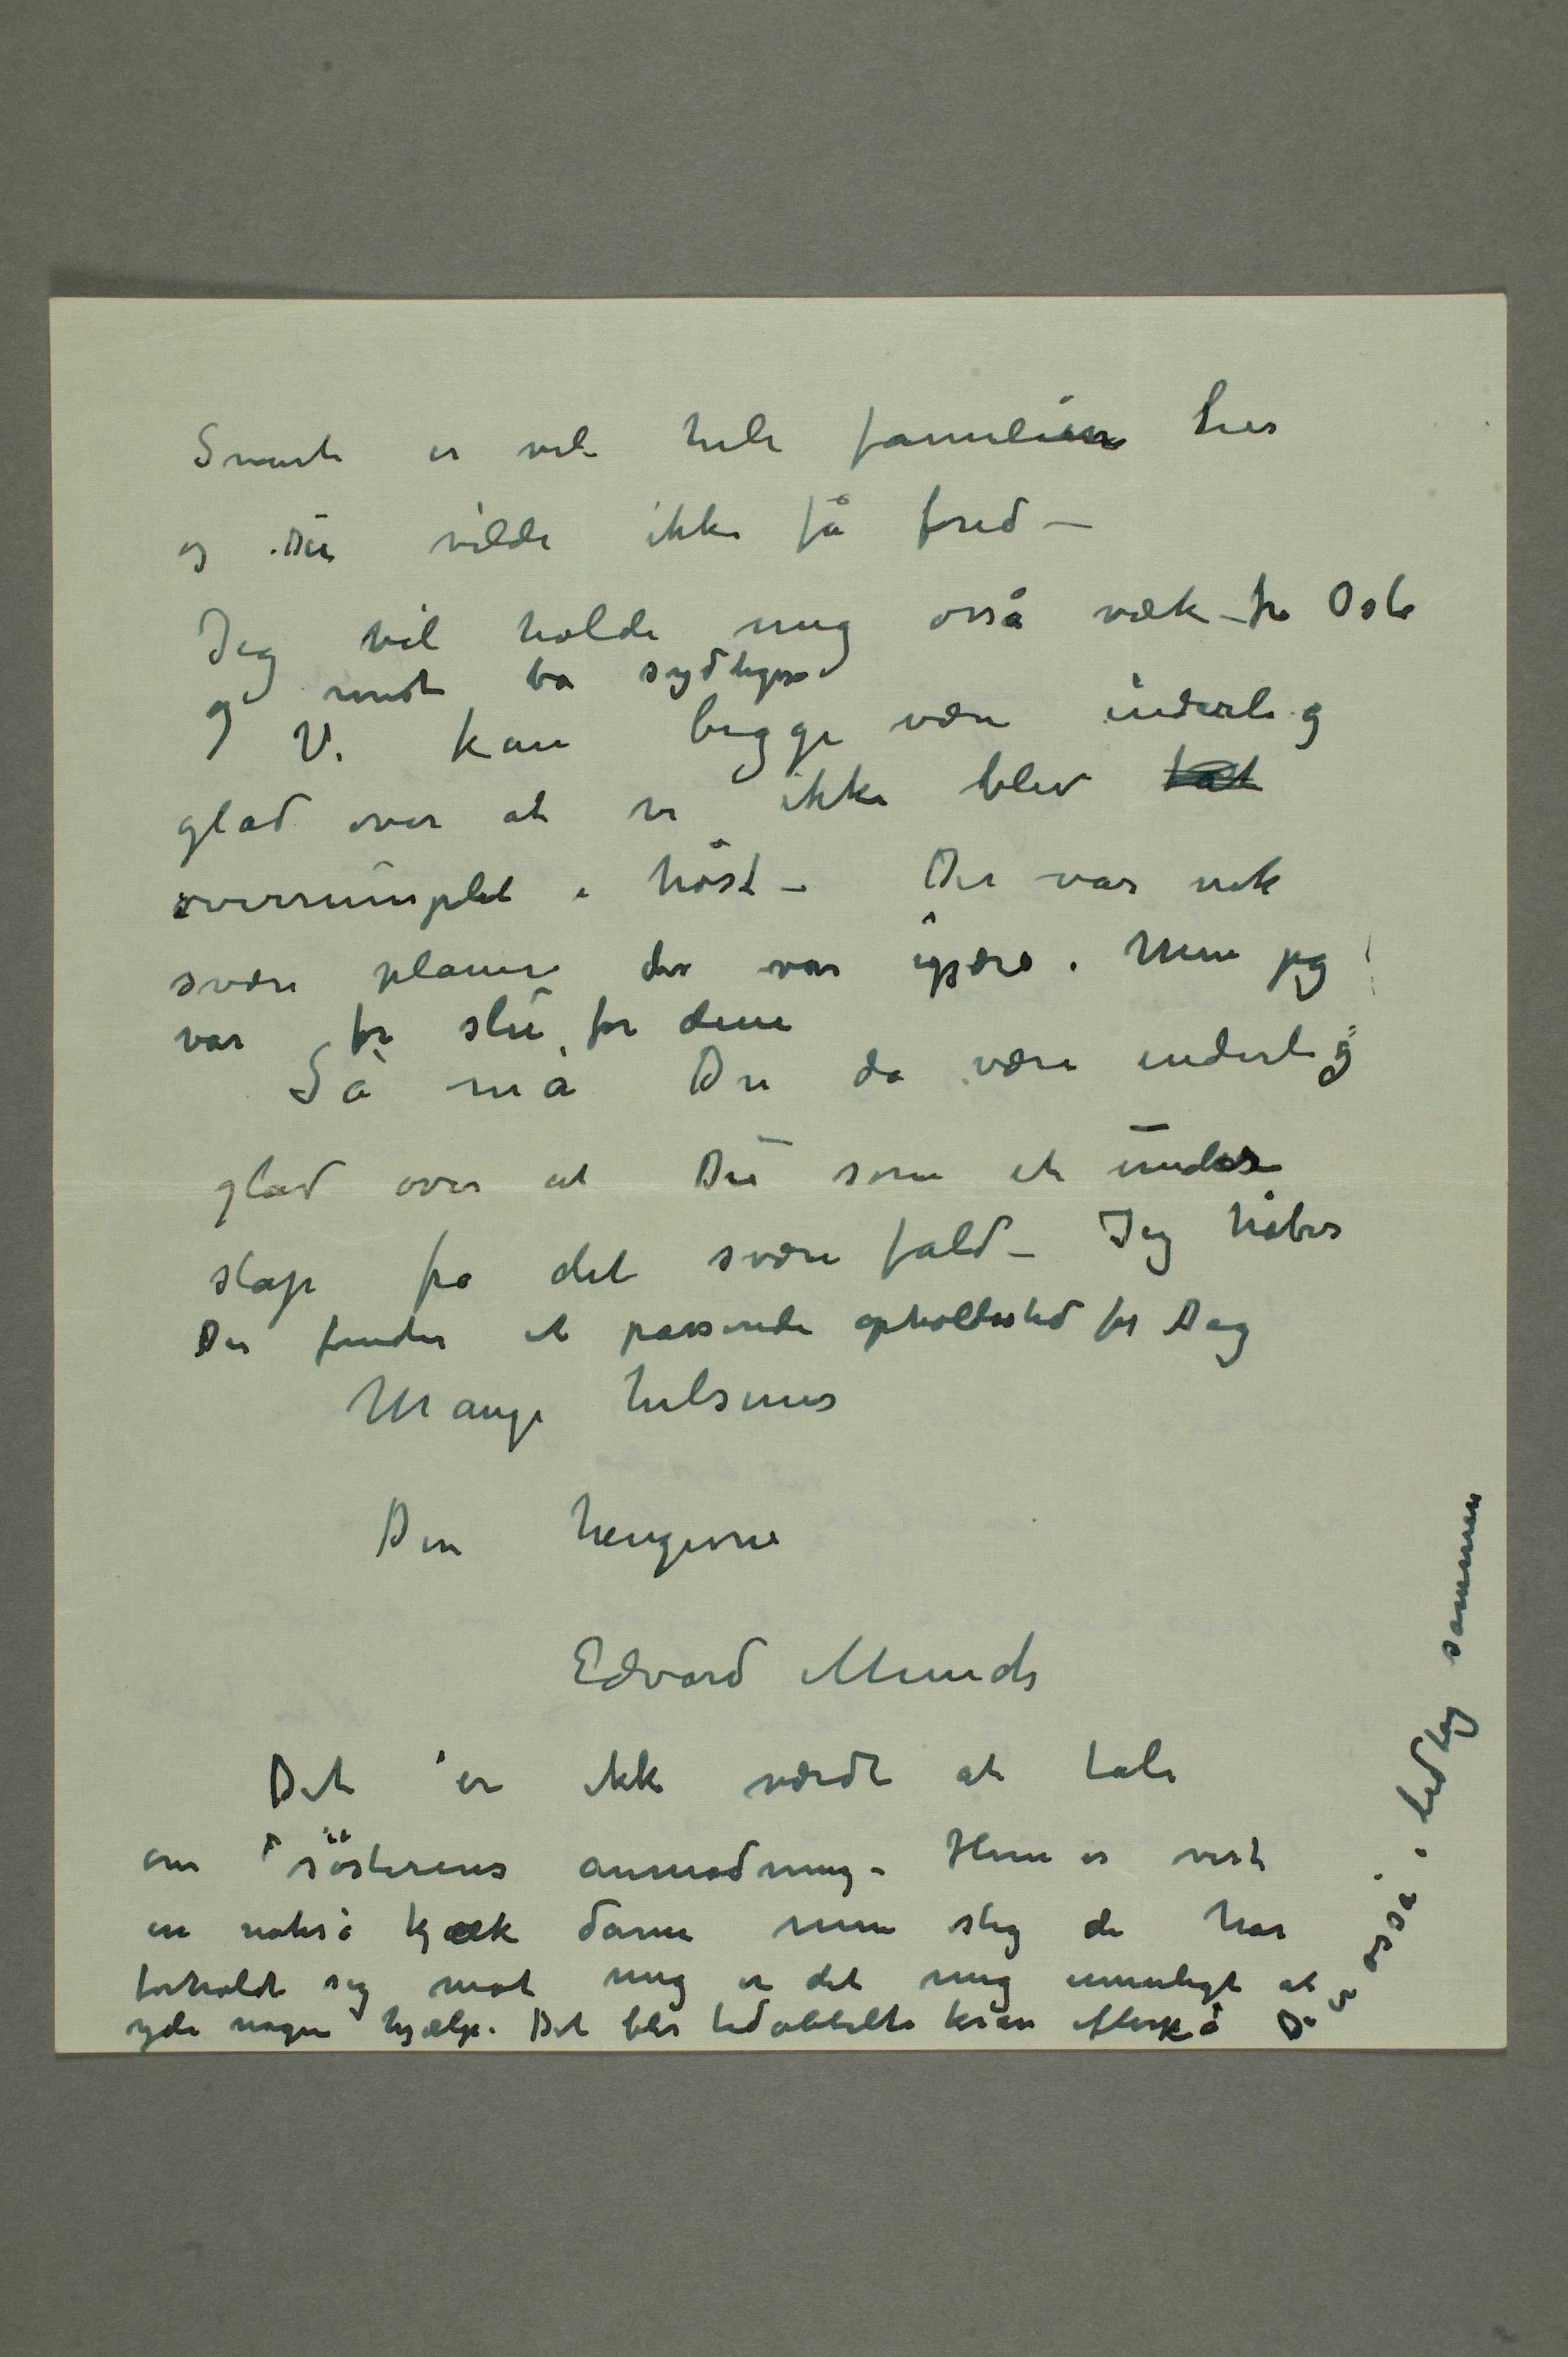 Snart er vel hele familien her
og Du vilde ikke få fred –
Jeg vil holde mig osså væk fra Oslo
og rundt bo sydligere
Vi kan begge være inderlig
glad over at vi ikke blev
overrumplet i høst – Der var nok
svære planer der var igjære. Men jeg
var for slu for dem
Så må Du da være inderlig
glad over at Du som et under
slap fra det svære fald – Jeg håber
Du finder et passende opholdssted for Dag
Mange hilsener
Din hengivne
Edvard Munch
Det er ikke værdt at tale
om søsterens anmodning – Hun er vist
en nokså kjæk dame men slig de har
forholdt sig mot mig er det mig umuligt at
yde nogen hjælp. Det blir krav efterpå
også i ledtog sammen